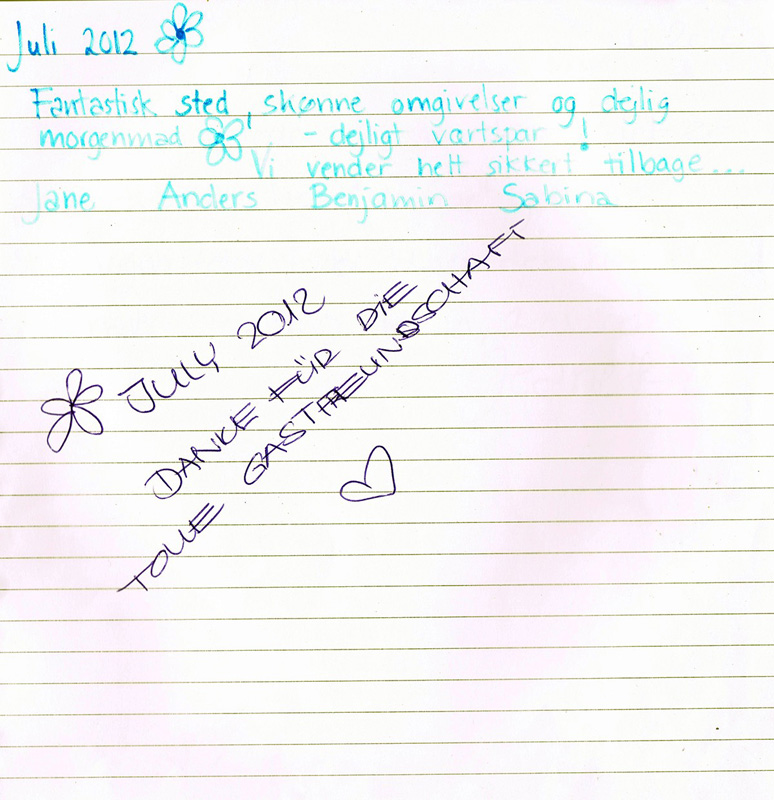 Juli 2012
Fantastisk sted, skønne omgivelser og dejlig
morgenmad - dejligt værtspar!
Vi vender helt sikkert tilbage...
Jane Anders Benjamin Sabina
JULY 2012
DANKE FÜR DIE
TOLLE GASTFREUNDSCHAFT